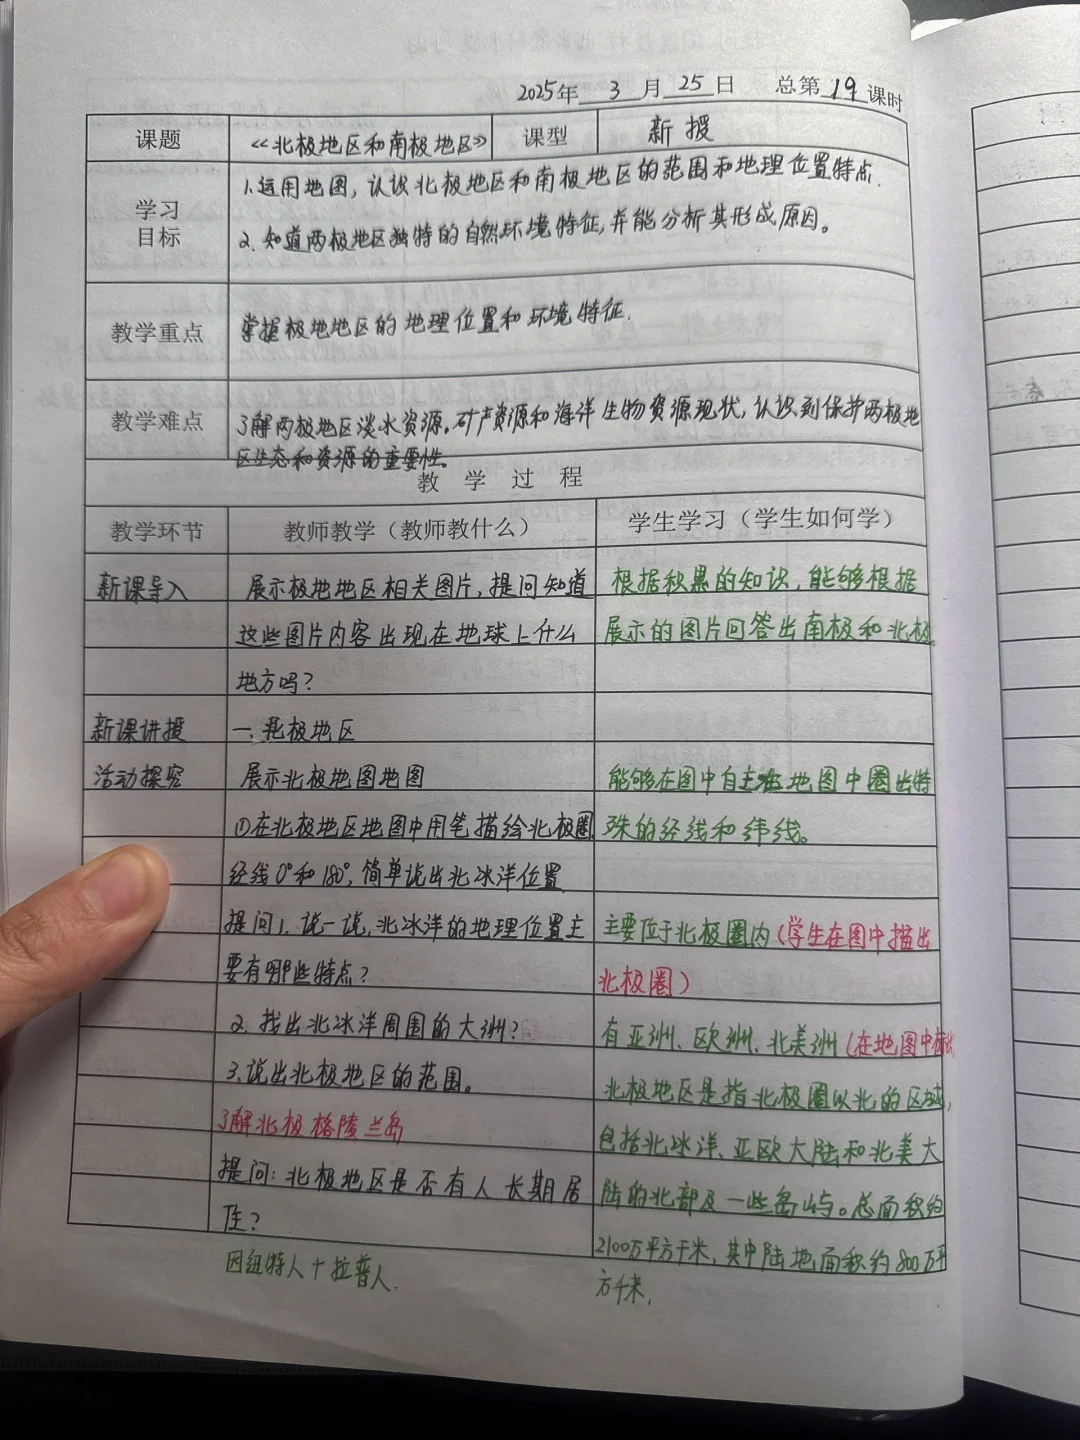 2025年 3 月 25 日 总第 19 课时
课题 《北极地区和南极地区》 课型 新授
学习目标
1.运用地图,认识北极地区和南极地区的范围和地理位置特点.
2.知道两极地区独特的自然环境特征,并能分析其形成原因。
教学重点 掌握极地地区的地理位置和环境特征.
教学难点 了解两极地区淡水资源.矿产资源和海洋生物资源现状,认识到保护两极地
区生态和资源的重要性。
教 学 过 程
教学环节 教师教学(教师教什么) 学生学习(学生如何学)
新课导入 展示极地地区相关图片,提问知道 根据积累的知识,能够根据
这些图片内容出现在地球上什么 展示的图片回答出南极和北极
地方吗?
新课讲授 一.北极地区
活动探究 展示北极地图地图 能够在图中自主在地图中圈出特
①在北极地区地图中用笔描绘北极圈 殊的经线和纬线。
经线0°和180°,简单说出北冰洋位置
提问1.说一说,北冰洋的地理位置主 主要位于北极圈内(学生在图中描出
要有哪些特点? 北极圈)
2.找出北冰洋周围的大洲? 有亚洲、欧洲、北美洲(在地图中标出
3.说出北极地区的范围。 北极地区是指北极圈以北的区域,
了解北极格陵兰岛 包括北冰洋、亚欧大陆和北美大
提问:北极地区是否有人长期居 陆的北部及一些岛屿。总面积约
住? 2100万平方千米,其中陆地面积约800万平
因纽特人十拉普人. 方千米.